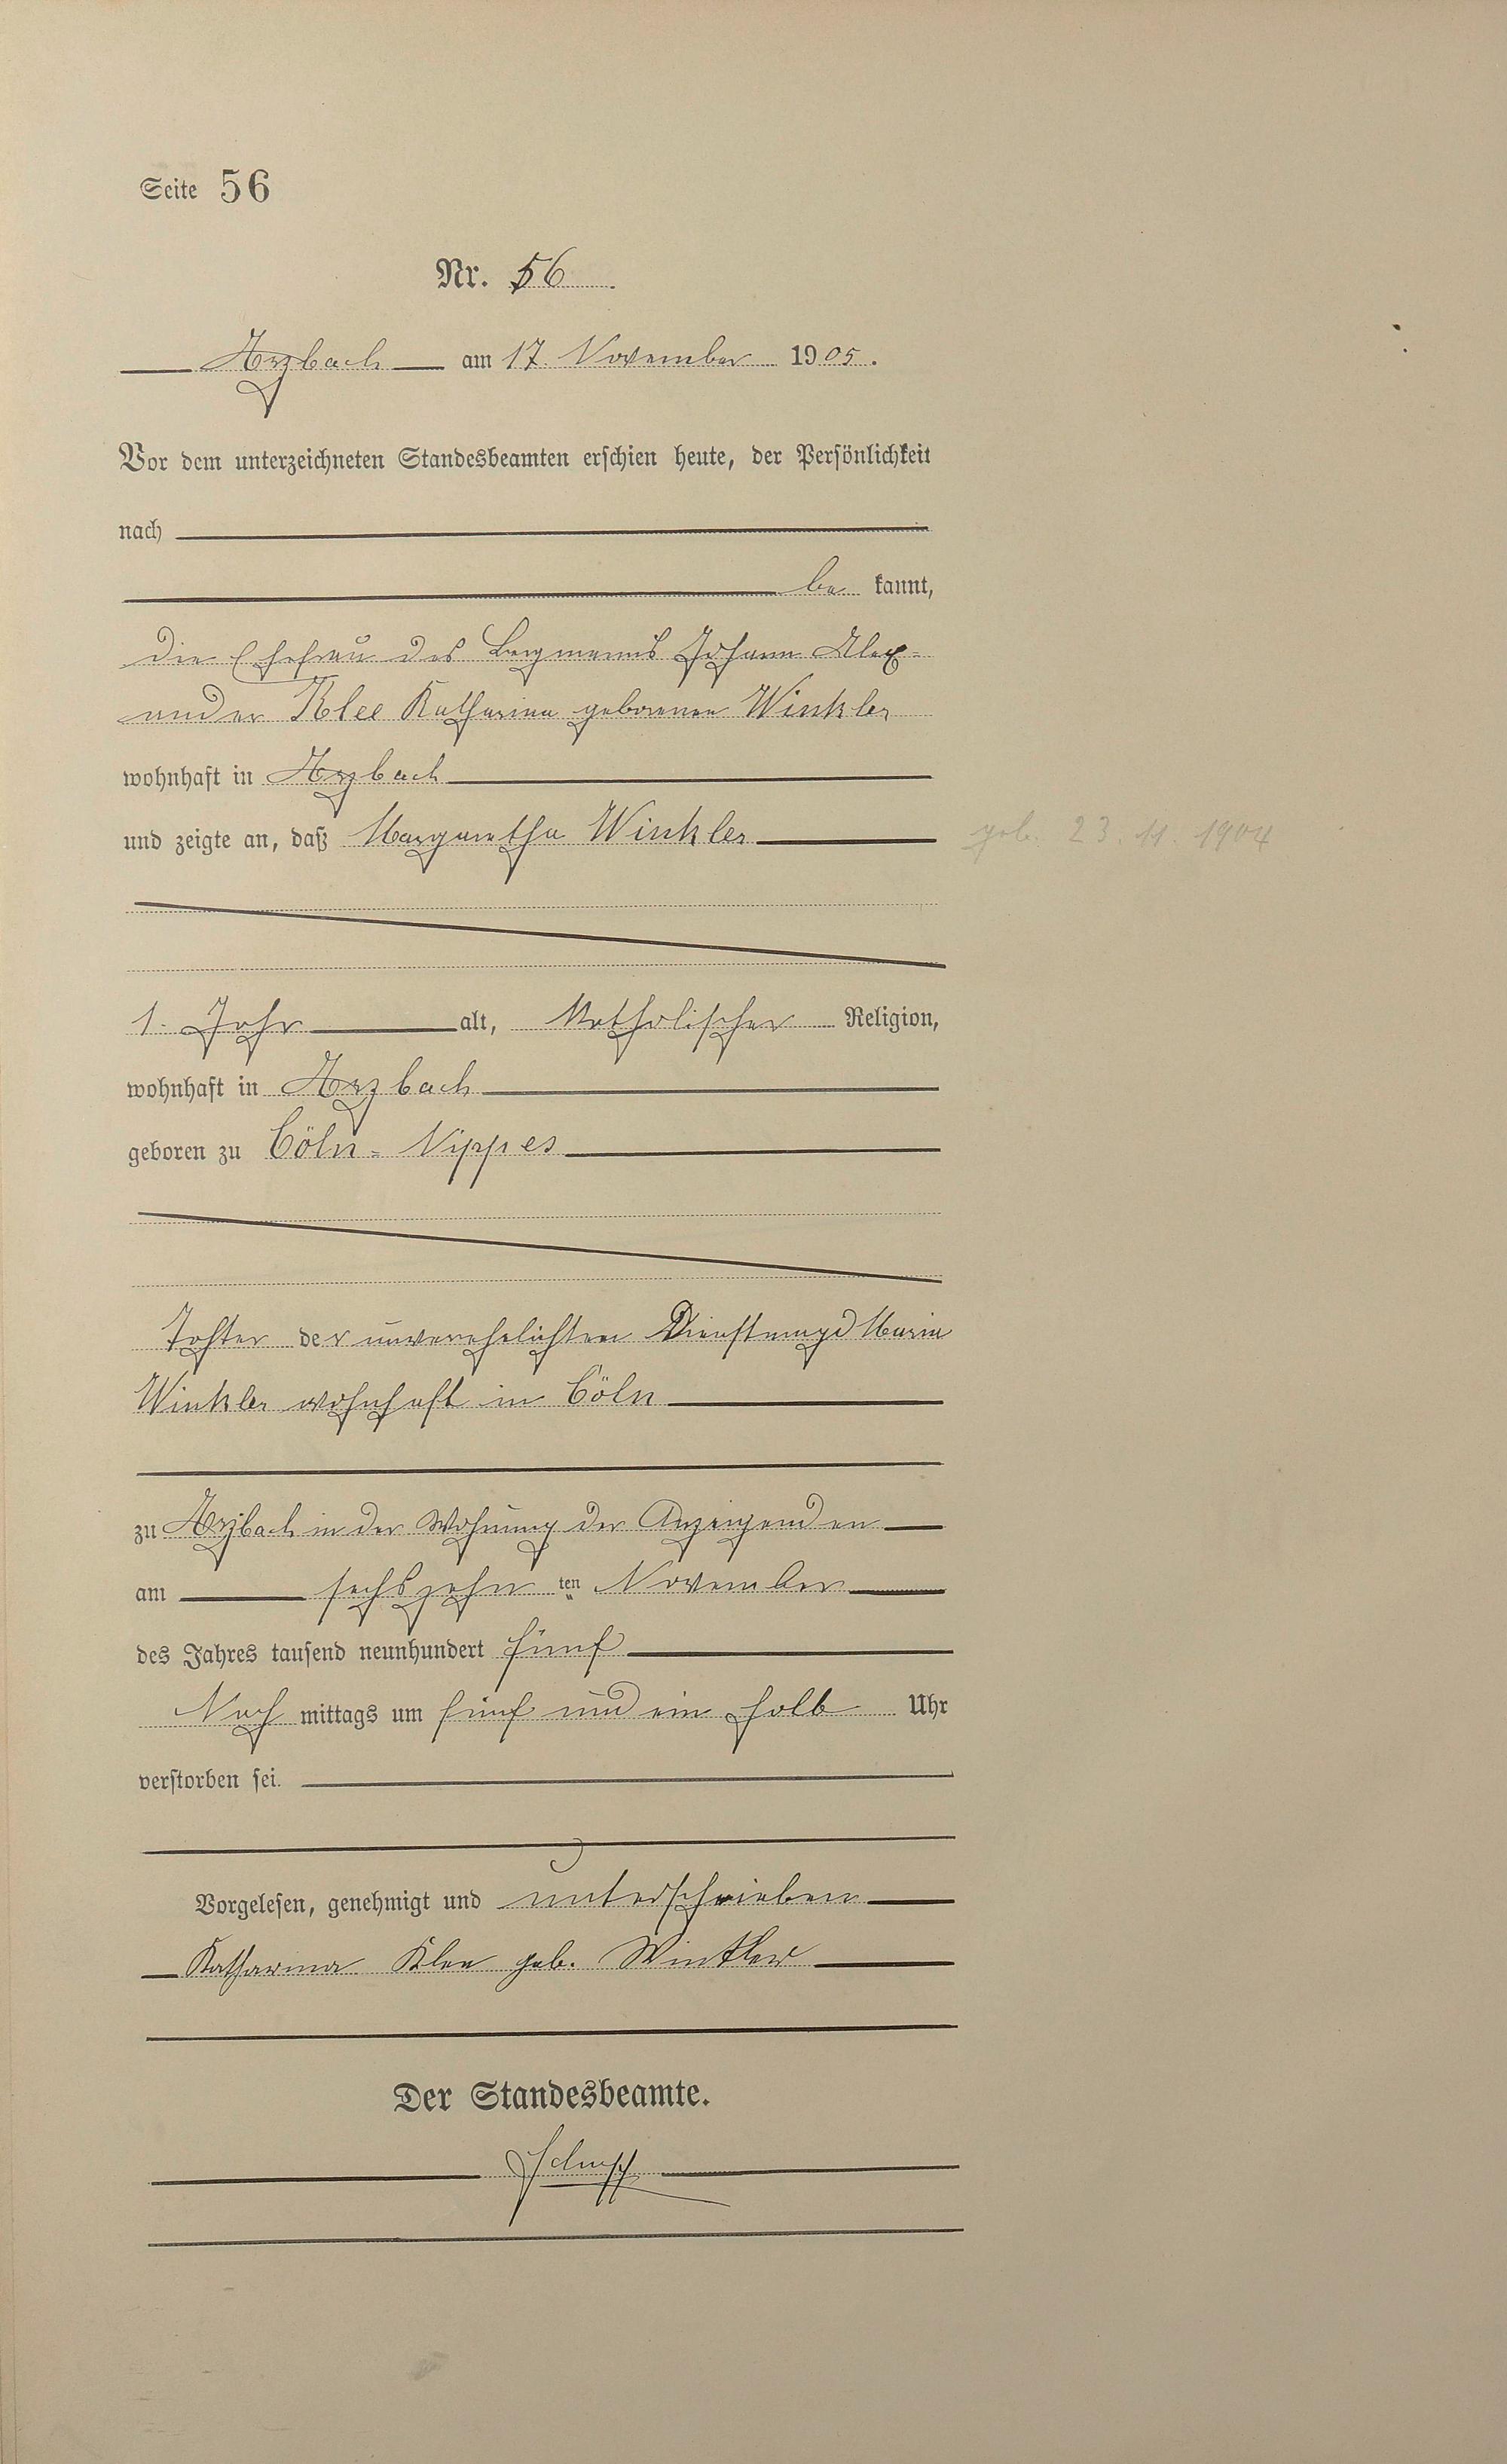 Seite 56
Nr. 56
Arzbach am 17. November 1905.
Vor dem unterzeichneten Standesbeamten erschien heute, der Persönlichkeit
nach
be kannt,
die Ehefrau des Bergmanns Johann Alex-
ander Klee Katharina geborenen Winkler
wohnhaft in Arzbach
und zeigte an, daß Margaretha Winkler
geb. 23.11.1904
1. Jahr alt, katholischer Religion,
wohnhaft in Arzbach
geboren zu Cöln-Nippes
Tochter der unverehelichten Dienstmagd Maria
Winkler wohnhaft in Cöln
zu Arzbach in der Wohnung der Anzeigenden
am sechszehn ten November
des Jahres tausend neunhundert fünf
Nach mittags um fünf und ein halb Uhr
verstorben sei.
Vorgelesen, genehmigt und unterschrieben
Katharina Klee geb. Winkler
Der Standesbeamte.